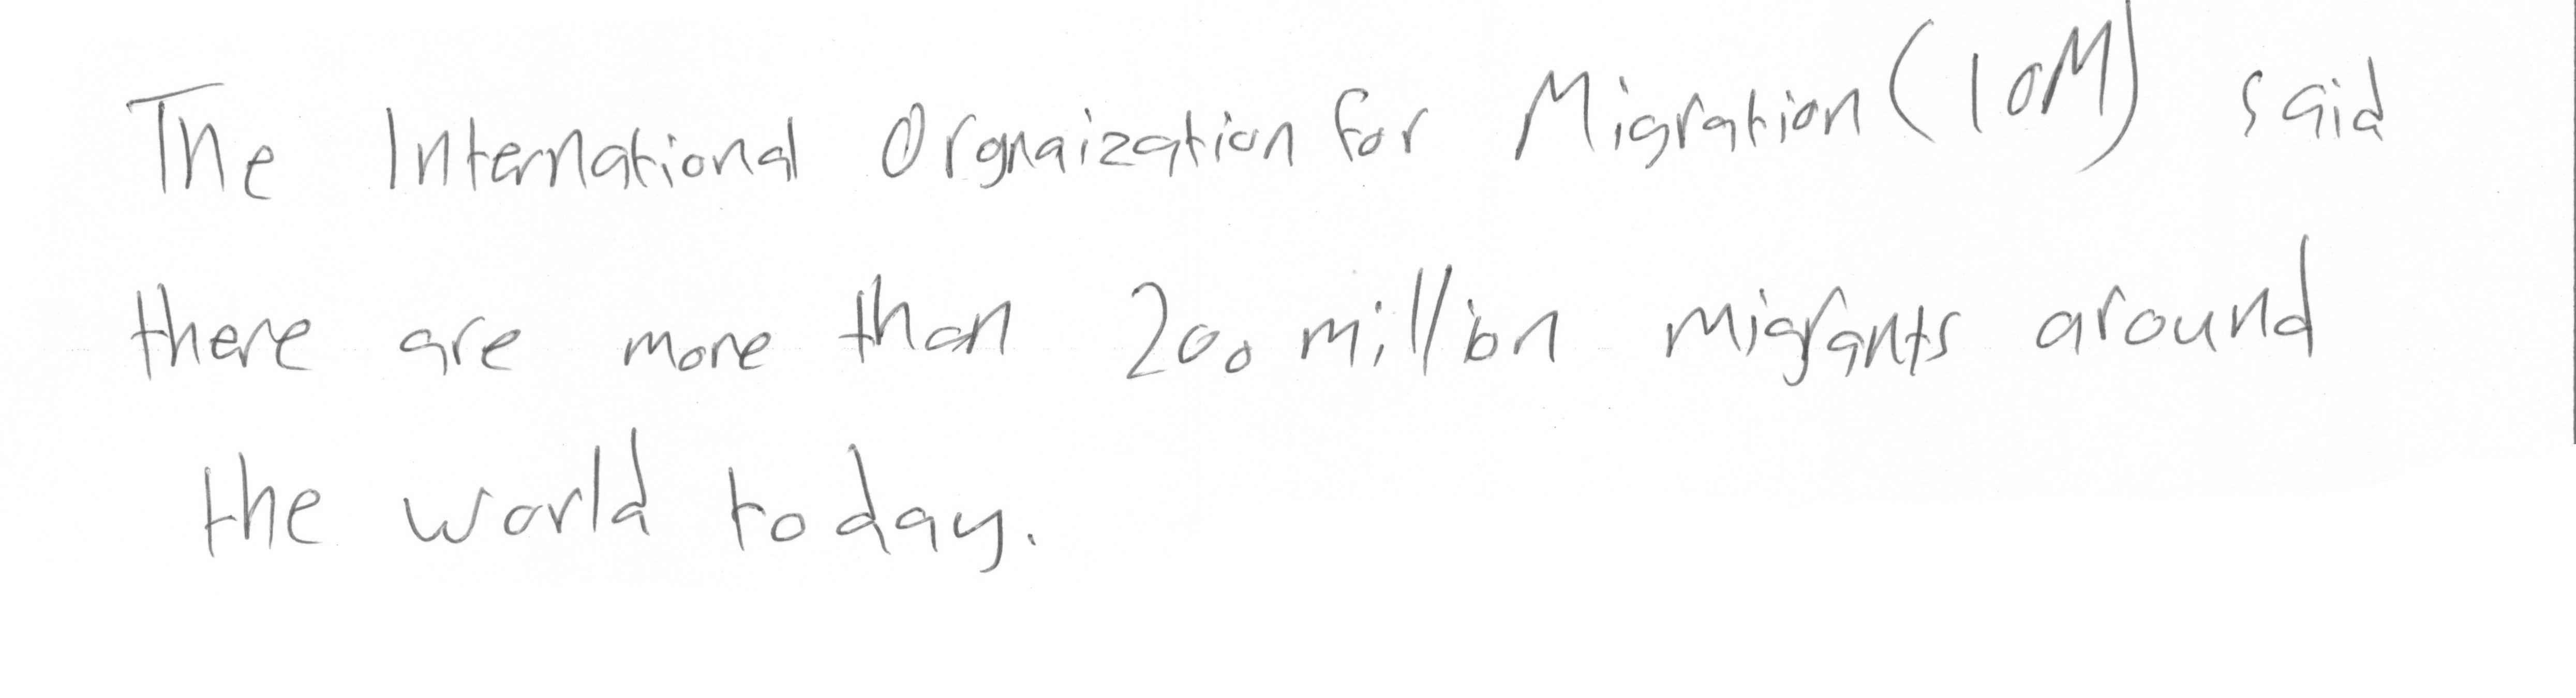 The International Orgnaization for Migration (IOM) said
there are more than 200 million migrants around
the world today.